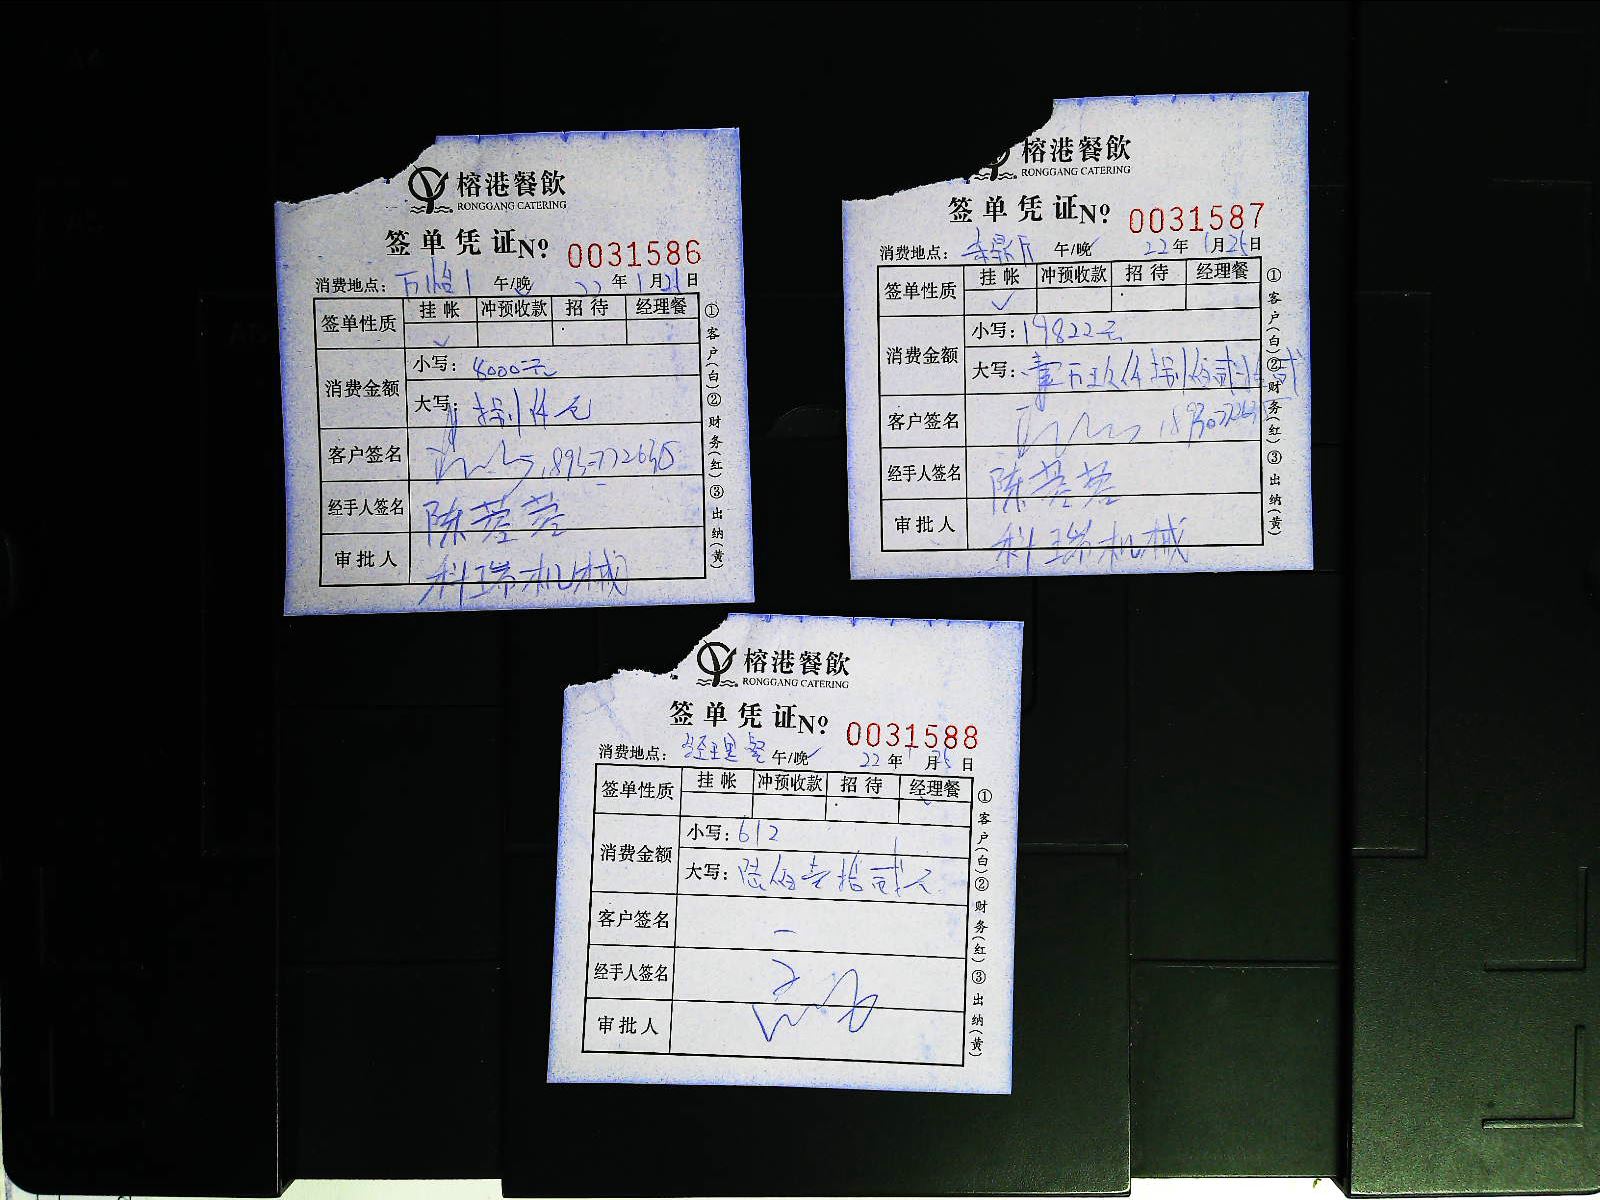 榕港餐飲
RONGGANG CATERING
签单凭证No 0031586
消费地点： 午/晚 22年1月25日
签单性质 挂帐 冲预收款 招待 经理餐
消费金额 小写：8000元
大写：捌仟元
客户签名
经手人签名 陈蓉蓉
审批人 科瑞机械
①客户(白)②财务(红)③出纳(黄)
榕港餐飲
RONGGANG CATERING
签单凭证No 0031587
消费地点： 午/晚 22年1月25日
签单性质 挂帐 冲预收款 招待 经理餐
消费金额 小写：19822元
大写：壹万玖仟捌佰贰拾贰
客户签名
经手人签名 陈蓉蓉
审批人 科瑞机械
①客户(白)②财务(红)③出纳(黄)
榕港餐飲
RONGGANG CATERING
签单凭证No 0031588
消费地点：经理餐 午/晚 22年1月25日
签单性质 挂帐 冲预收款 招待 经理餐
消费金额 小写：612
大写：陆佰壹拾贰元
客户签名
经手人签名
审批人
①客户(白)②财务(红)③出纳(黄)